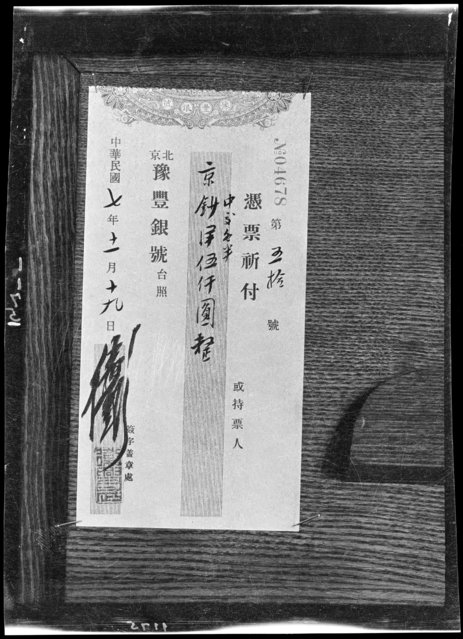 №04678
第五拾號
憑票祈付
或持票人
中交各半
京鈔洋伍仟圓整
北京
豫豐銀號台照
中華民國七年十一月十九日
簽字蓋章處
1175